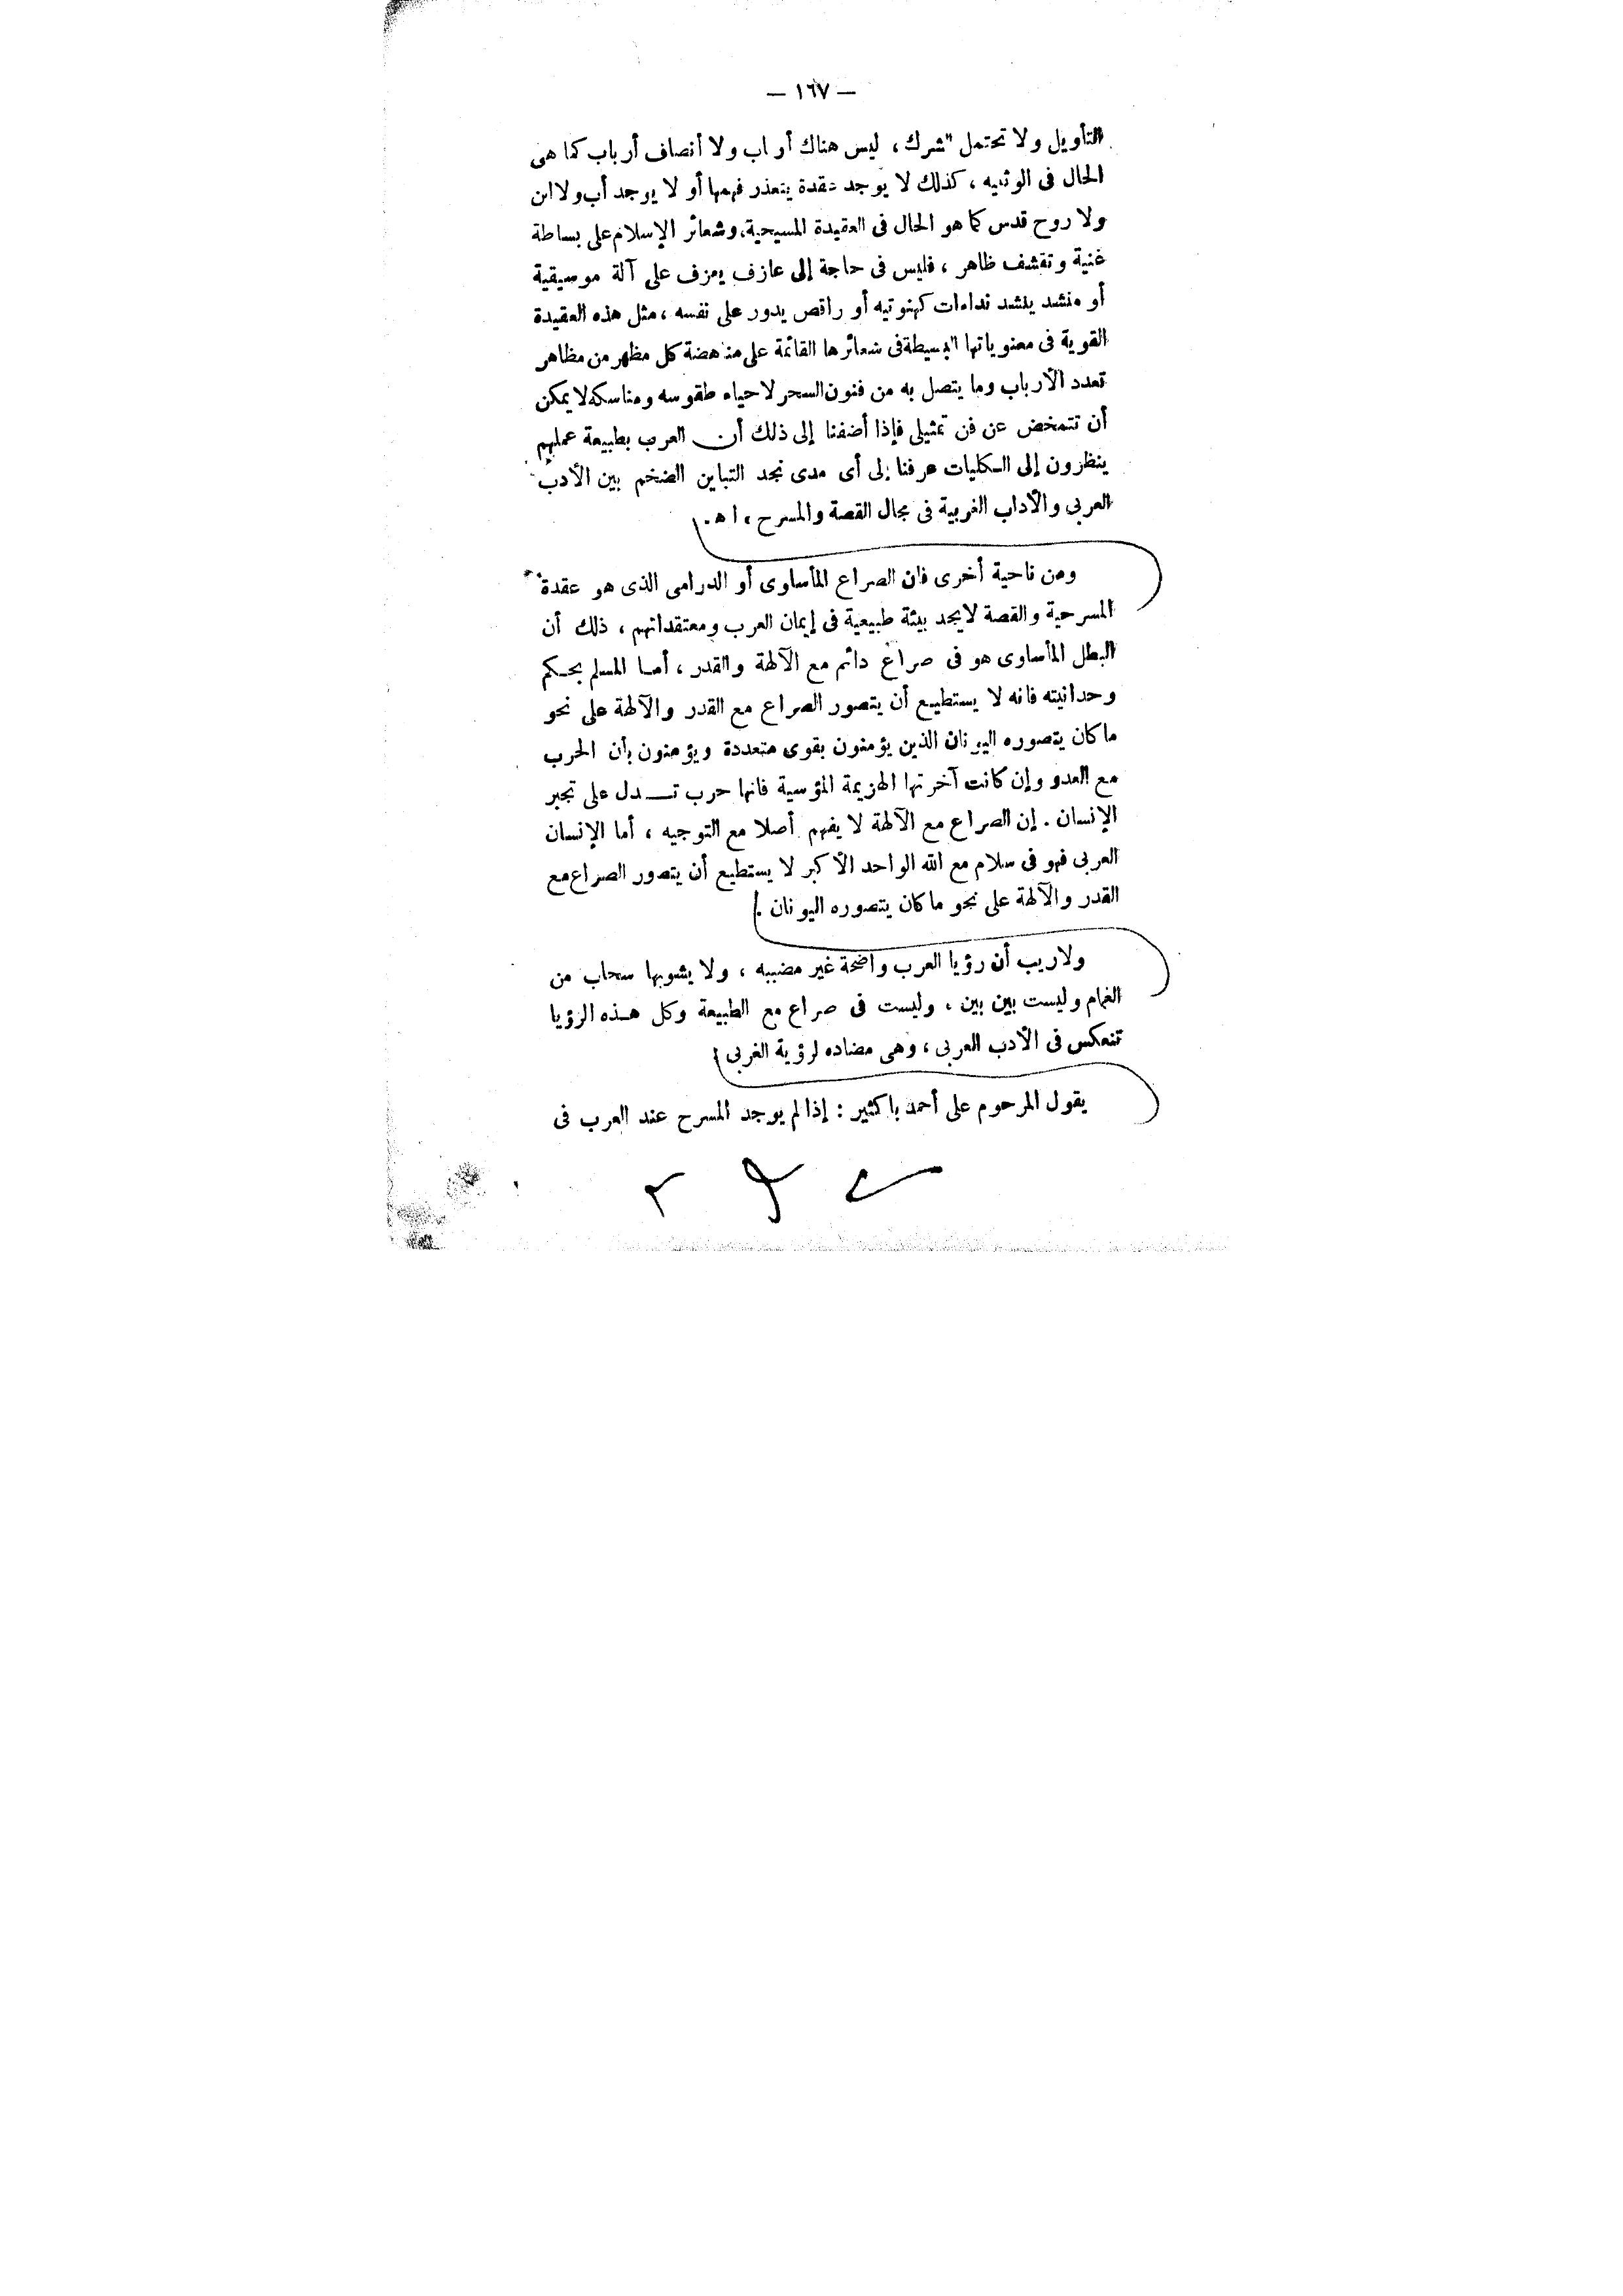 — ١٦٧ —
التأويل ولا تحتمل الشرك ، ليس هناك أرباب ولا أنصاف أرباب كما هى
الحال فى الوثنيه ، كذلك لا يوجد عقدة يتعذر فهمها أو لا يوجد أب ولا ابن
ولا روح قدس كما هو الحال فى العقيدة المسيحية، وشعائر الإسلام على بساطة
غنية وتقشف ظاهر ، فليس فى حاجة إلى عازف يعزف على آلة موسيقية
أو منشد ينشد نداءات كهنوتيه أو راقص يدور على نفسه ، مثل هذه العقيدة
القوية فى معنوياتها البسيطة فى شعائرها القائمة على مناهضة كل مظهر من مظاهر
تعدد الأرباب وما يتصل به من فنون السحر لاحياء طقوسه ومناسكه لا يمكن
أن تتمخض عن فن تمثيلى فإذا أضفنا إلى ذلك أن العرب بطبيعة عملهم
ينظرون إلى الكليات عرفنا إلى أى مدى نجد التباين الضخم بين الأدب
العربى والآداب الغربية فى مجال القصة والمسرح ، ا ه .
ومن ناحية أخرى فان الصراع المأساوى أو الدرامى الذى هو عقدة
المسرحية والقصة لايجد بيئة طبيعية فى إيمان العرب ومعتقداتهم ، ذلك أن
البطل المأساوى هو فى صراع دائم مع الآلهة والقدر ، أما المسلم بحكم
وحدانيته فانه لا يستطيع أن يتصور الصراع مع القدر والآلهة على نحو
ماكان يتصوره اليونان الذين يؤمنون بقوى متعددة ويؤمنون بأن الحرب
مع العدو وإن كانت آخرتها الهزيمة المؤسية فانها حرب تـــدل على تجبر
الإنسان . إن الصراع مع الآلهة لا يفهم أصلا مع التوجيه ، أما الإنسان
العربى فهو فى سلام مع الله الواحد الأكبر لا يستطيع أن يتصور الصراع مع
القدر والآلهة على نحو ماكان يتصوره اليونان .
ولاريب أن رؤيا العرب واضحة غير مضببه ، ولا يشوبها سحاب من
الغمام وليست بين بين ، وليست فى صراع مع الطبيعة وكل هـذه الرؤيا
تنعكس فى الأدب العربى ، وهى مضاده لرؤية الغربى
يقول المرحوم على أحمد باكثير : إذا لم يوجد المسرح عند العرب فى